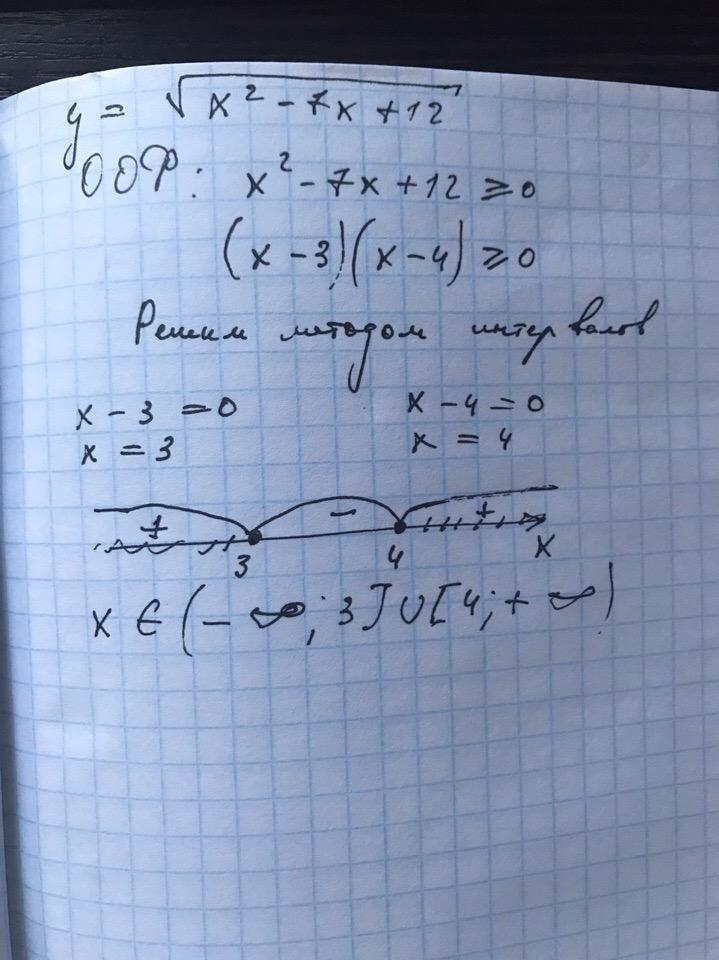 y = √x² - 7x + 12
ООФ: x² - 7x + 12 ⩾ 0
(x - 3)(x - 4) ⩾ 0
Решим методом интервалов
x - 3 = 0 x - 4 = 0
x = 3 x = 4
+ - +
3 4 x
x ∈ (-∞; 3] ∪ [4; +∞)